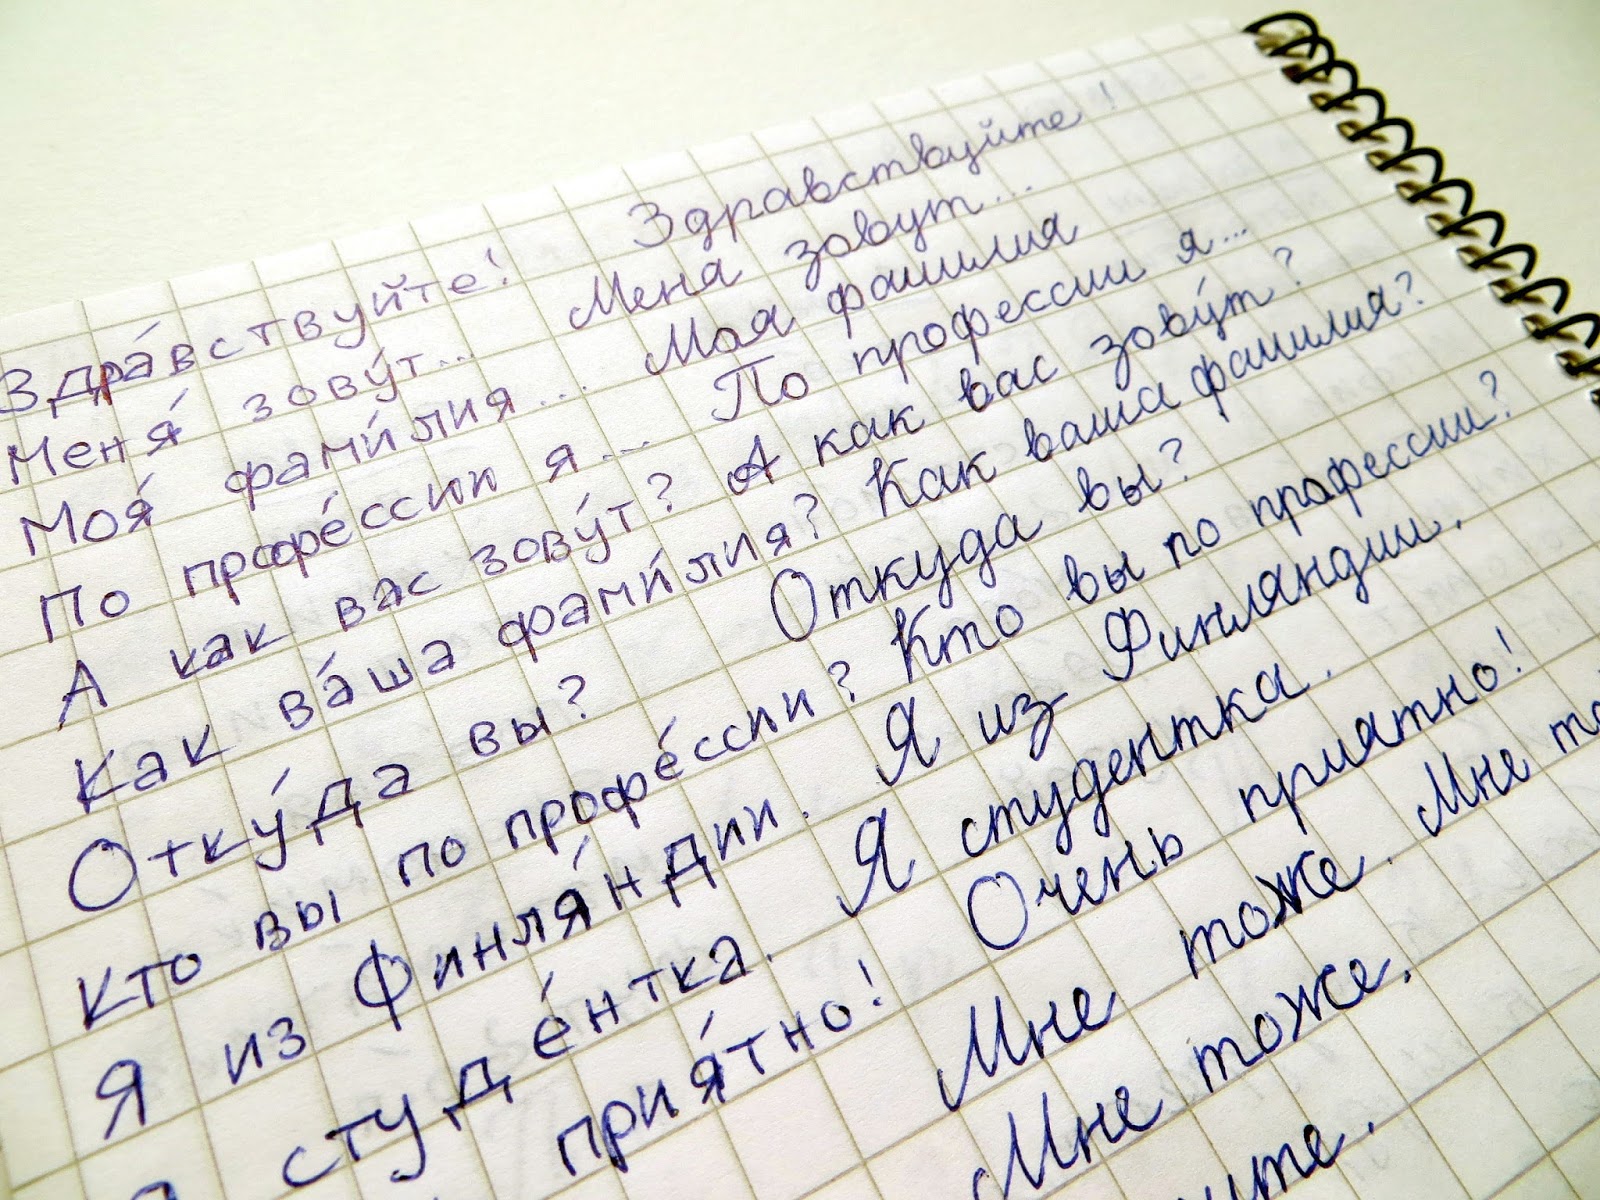 Здра́вствуйте! Здравствуйте!
Меня́ зову́т... Меня зовут...
Моя́ фами́лия... Моя фамилия
По профе́ссии я... По профессии я...
А как вас зову́т? А как вас зову́т?
Как ва́ша фами́лия? Как ваша фамилия?
Отку́да вы? Откуда вы?
Кто вы по профе́ссии? Кто вы по профессии?
Я из Финля́ндии. Я из Финляндии.
студе́нтка. Я студентка.
прия́тно! Очень приятно!
Мне тоже. Мне
Мне тоже.